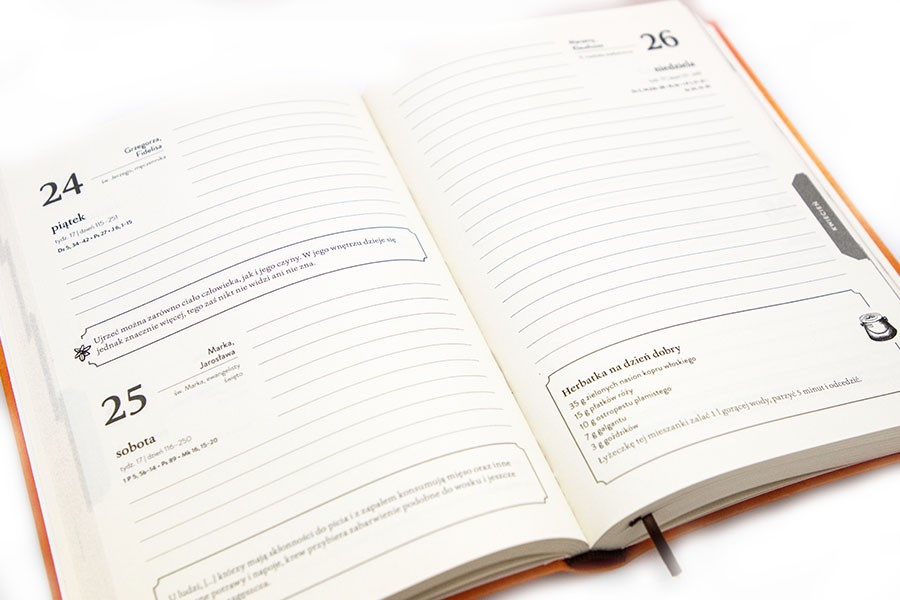 24
Grzegorza,
Fidelisa
św. Jerzego, męczennika
piątek
tydz. 17 | dzień 115–251
Dz 5, 34–42 • Ps 27 • J 6, 1–15
Ujrzeć można zarówno ciało człowieka, jak i jego czyny. W jego wnętrzu dzieje się
jednak znacznie więcej, tego zaś nikt nie widzi ani nie zna.
25
Marka,
Jarosława
św. Marka, ewangelisty
święto
sobota
tydz. 17 | dzień 116–250
1 P 5, 5b–14 • Ps 89 • Mk 16, 15–20
ludzi, [...] którzy mają skłonności do picia i z zapałem konsumują mięso oraz inne
potrawy i napoje, krew przybiera zabarwienie podobne do wosku i jeszcze
26
niedziela
KWIECIEŃ
Herbatka na dzień dobry
35 g zielonych nasion kopru włoskiego
15 g płatków róży
10 g ostropestu plamistego
7 g galgantu
3 g goździków
Łyżeczkę tej mieszanki zalać 1 l gorącej wody, parzyć 5 minut i odcedzić.